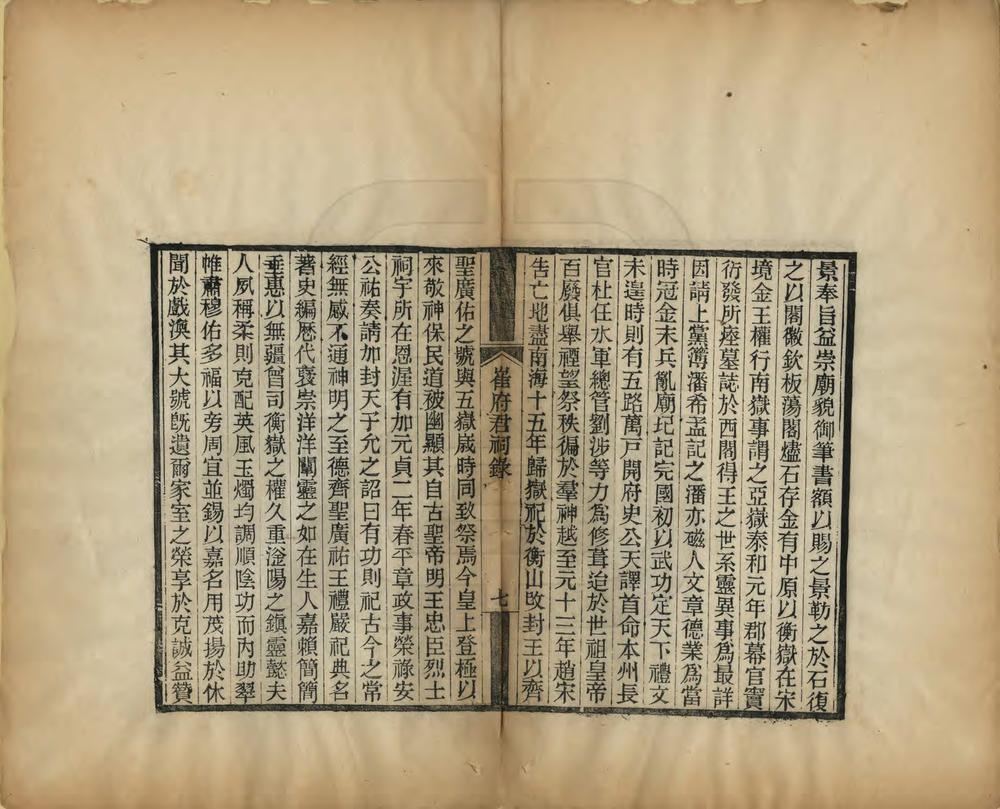 景奉旨益崇廟貌御筆書額以賜之景勒之於石復
之以閣徽欽板蕩閣燼石存金有中原以衡嶽在宋
境金王權行南嶽事謂之亞嶽泰和元年郡幕官竇
衍發所瘞墓誌於西閣得王之世系靈異事爲最詳
因請上黨簿潘希孟記之潘亦磁人文章德業爲當
時冠金末兵亂廟圮記完國初以武功定天下禮文
未遑時則有五路萬戸開府史公天譯首命本州長
官杜任水軍總管劉涉等力爲修葺迨於世祖皇帝
百廢俱舉禋望祭秩徧於羣神越至元十三年趙宋
告亡地盡南海十五年歸嶽祀於衡山改封王以齊
崔府君祠錄
七
聖廣佑之號與五嶽歲時同致祭焉今皇上登極以
來敬神保民道被幽顯其自古聖帝明王忠臣烈士
祠宇所在恩渥有加元貞二年春平章政事榮祿安
公祐奏請加封天子允之詔曰有功則祀古今之常
經無感不通神明之至德齊聖廣祐王禮嚴祀典名
著史編歷代褒崇洋洋闡靈之如在生人嘉賴簡簡
垂惠以無疆曾司衡嶽之權久重滏陽之鎮靈懿夫
人夙稱柔則克配英風玉燭均調順陰功而內助翠
帷肅穆佑多福以旁周宜並錫以嘉名用茂揚於休
聞於戲渙其大號旣遺爾家室之榮享於克誠益贊